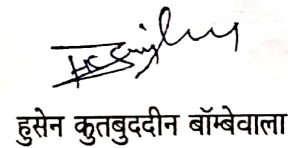 हुसेन कुतबुददीन बॉम्बेवाला